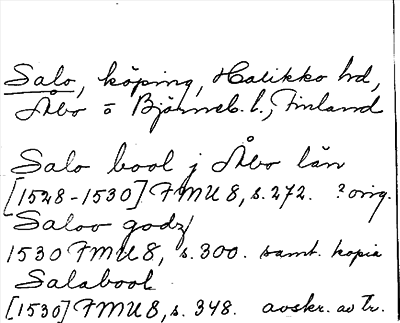 Salo, köping, Halikko hd,
Åbo o Björneb. l., Finland
Salo bool j Åbo län
[1528-1530] FMU 8, s. 272. ? orig.
Saloo godz
1530 FMU 8, s. 300. samt. kopia
Salabool
[1530] FMU 8, s. 348. avskr. av Tr.